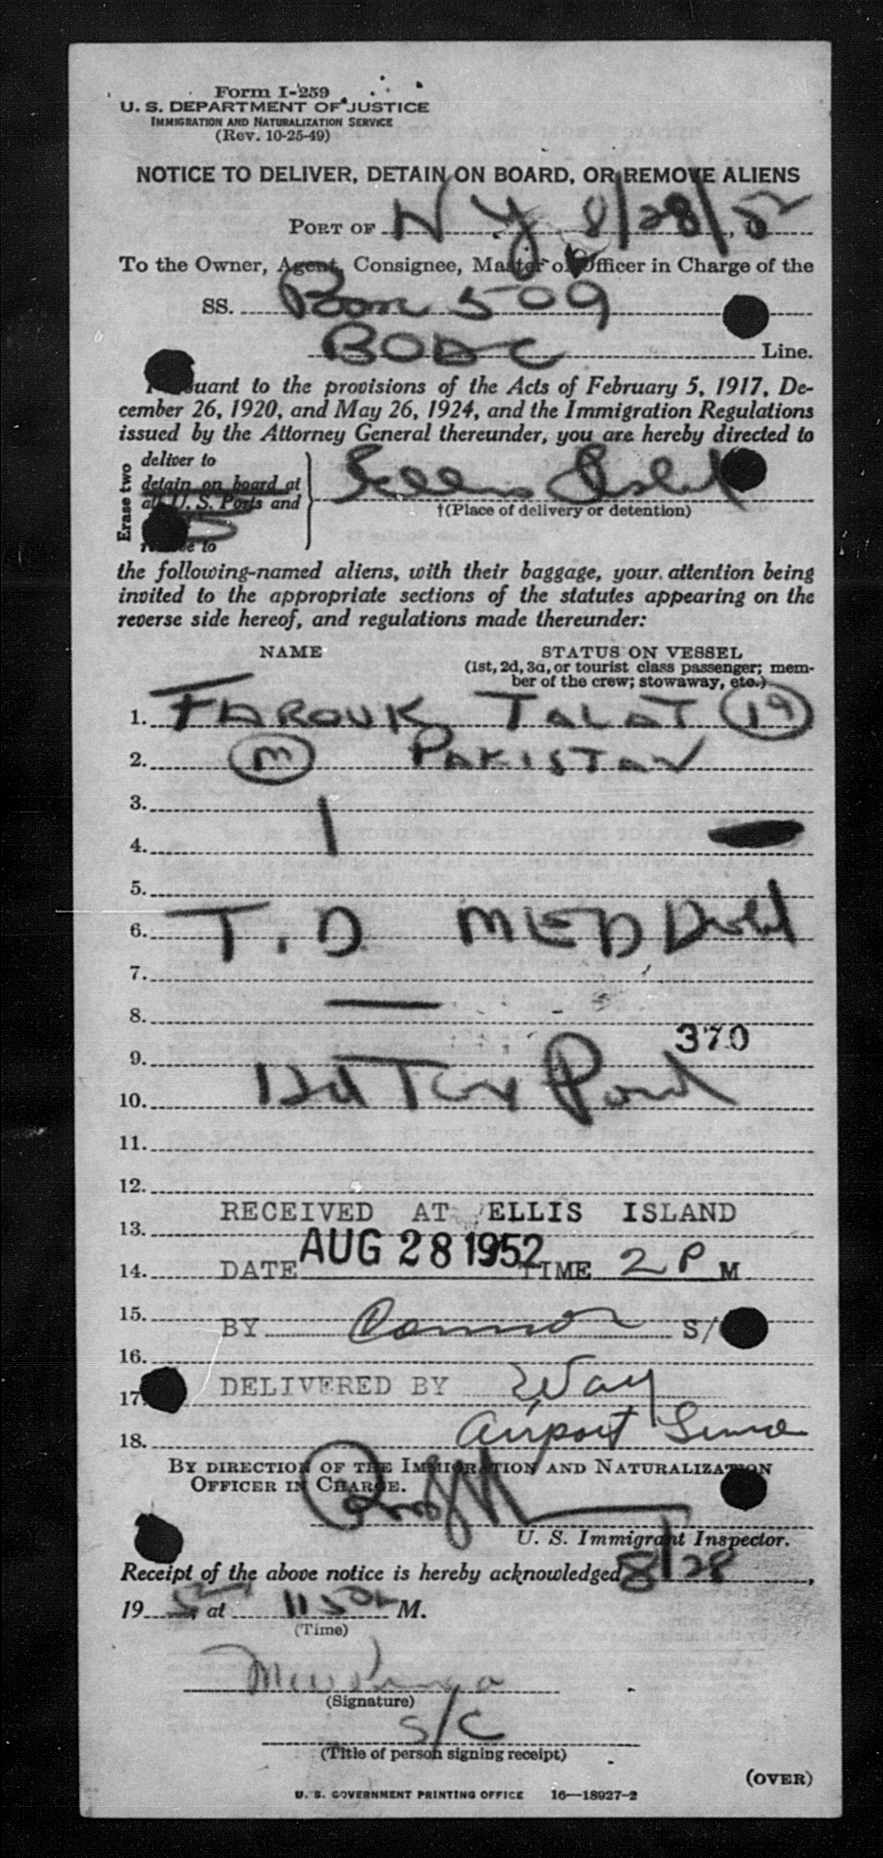 Form I-259
U. S. DEPARTMENT OF JUSTICE
IMMIGRATION AND NATURALIZATION SERVICE
(Rev. 10-25-49)
NOTICE TO DELIVER, DETAIN ON BOARD, OR REMOVE ALIENS
PORT OF NY 8/28/52
To the Owner, Agent, Consignee, Master or Officer in Charge of the
SS. 509
BOAC Line.
Pursuant to the provisions of the Acts of February 5, 1917, De-
cember 26, 1920, and May 26, 1924, and the Immigration Regulations
issued by the Attorney General thereunder, you are hereby directed to
Erase two
deliver to
detain on board at
all U. S. Ports and
to
Ellis Island
†(Place of delivery or detention)
the following-named aliens, with their baggage, your attention being
invited to the appropriate sections of the statutes appearing on the
reverse side hereof, and regulations made thereunder:
NAME STATUS ON VESSEL
(1st, 2d, 3d, or tourist class passenger; mem-
ber of the crew; stowaway, etc.)
1. FAROUK TALAT 19
2. M PAKISTAN
3.
4.
5.
6. T.D. MED
7.
8.
370
9.
10. Tax
11.
12.
RECEIVED AT ELLIS ISLAND
13.
14. DATE AUG 28 1952 TIME 2 P M
15. BY Connor S/
16.
17. DELIVERED BY Way
18. Airport
BY DIRECTION OF THE IMMIGRATION AND NATURALIZATION
OFFICER IN CHARGE.
U. S. Immigrant Inspector.
Receipt of the above notice is hereby acknowledged 8/28,
19 52, at 1150 M.
(Time)
(Signature)
S/C
(Title of person signing receipt)
(OVER)
U. S. GOVERNMENT PRINTING OFFICE 16—18927-2